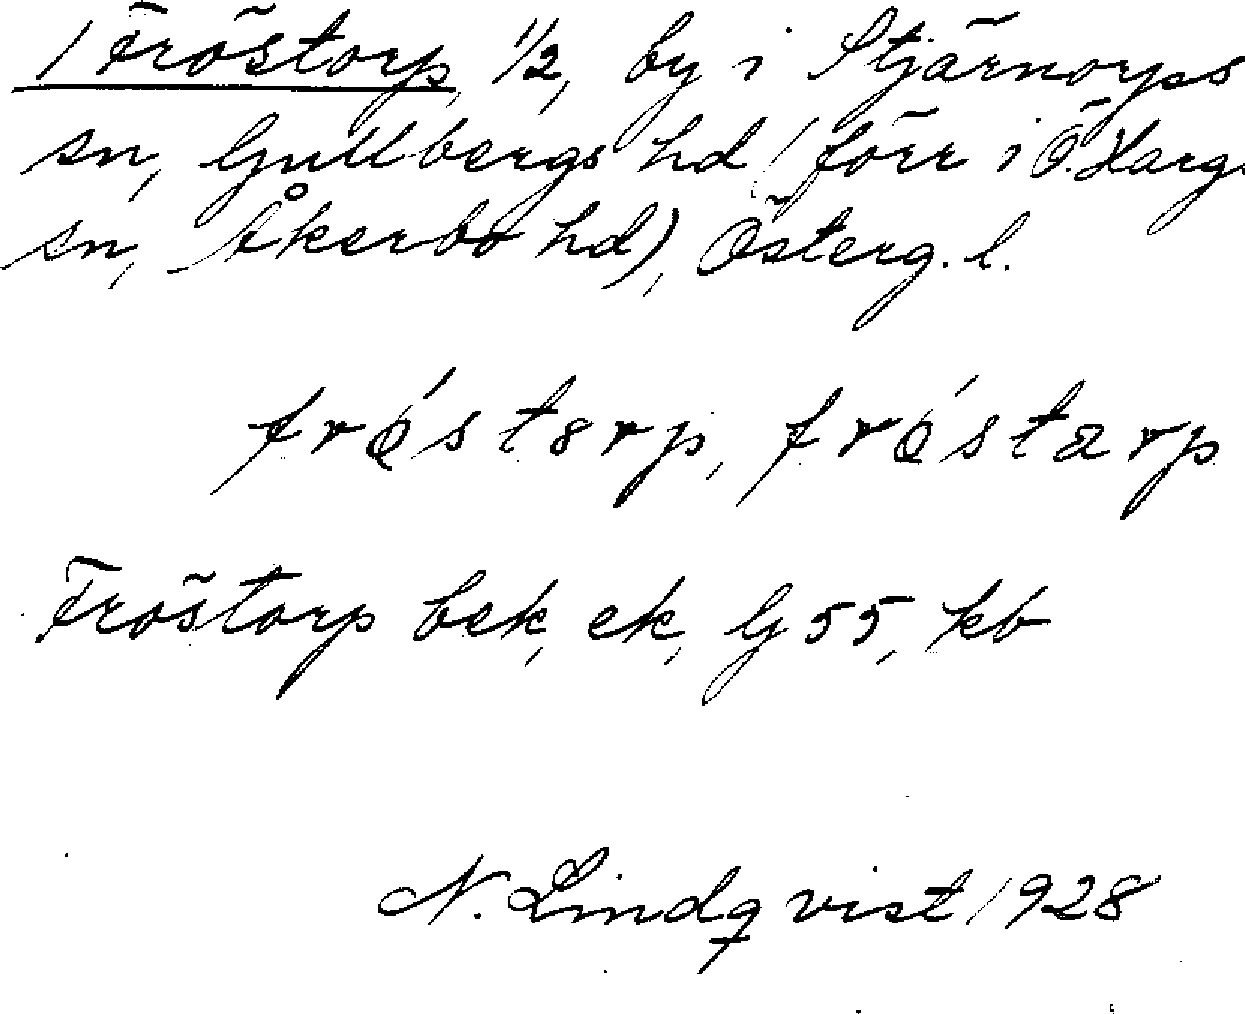 1 Fröstorp, 1/2, by i Stjärnorps
sn, Gullbergs hd (förr i Ö. Hargs
sn, Åkerbo hd), Österg. l.
frǫ́storp, frǫ́starp
Fröstorp bek, ek, G 55, kb
N. Lindqvist 1928